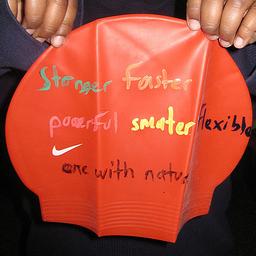 Stronger Faster
powerful smater flexible
one with natur